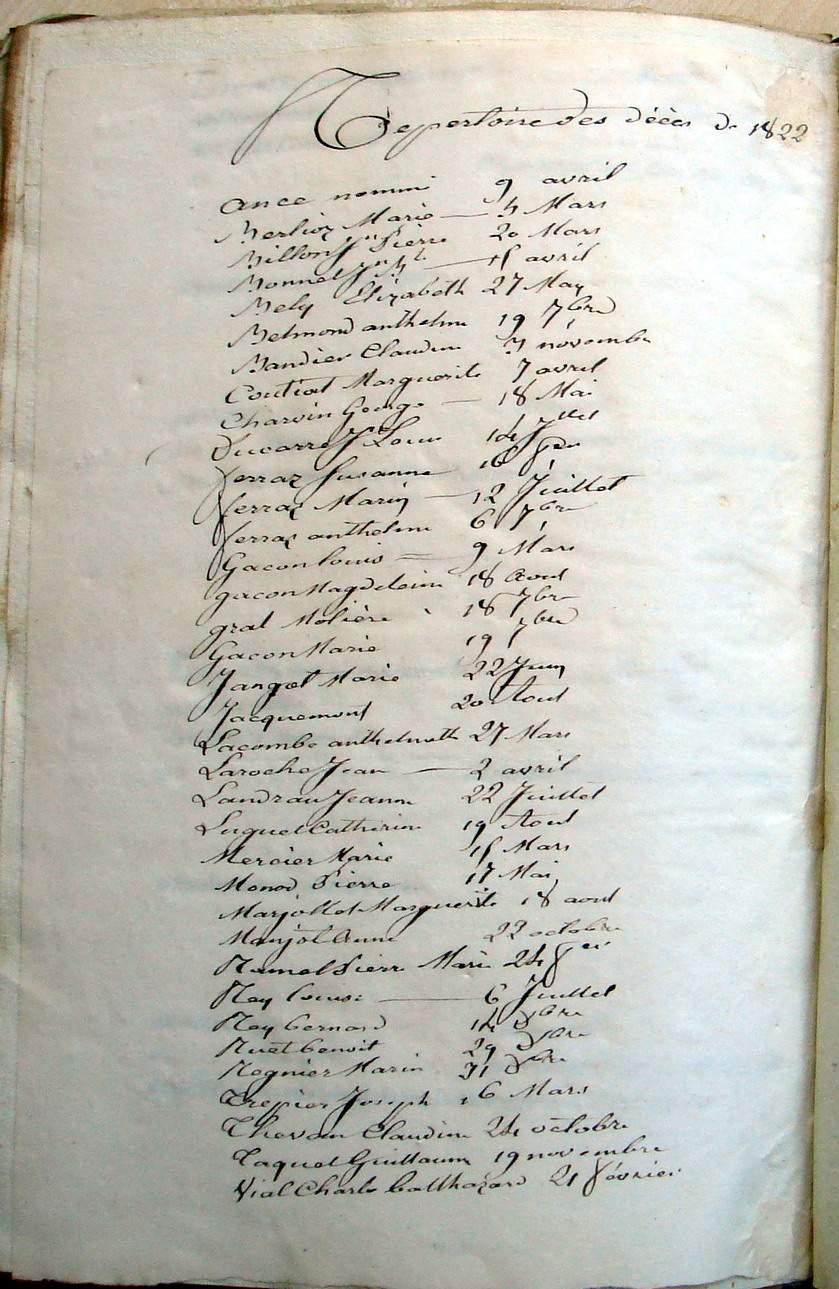 Repertoire des décès de 1822
ance nommé 9 avril
Berlioz Marie — 4 Mars
Billon Jn Pierre 20 Mars
Bonnet Jn Bt — 15 avril
Bely Elizabeth 27 May
Belmond anthelme 19 7bre
Bandier Claudine 3 novembre
Coutiat Marguerite 7 avril
Charvin George — 18 Mai
Ducarre J Louis 14 Jllet
ferraz Susanne 16
ferraz Marin — 12 Juillet
ferraz anthelme 6 7bre
Gacon louis — 9 Mars
gacon Magdeleine 18 aout
grat Molière 18 7bre
Gacon Marie 19 7bre
Jangot Marie 22 Juin
Jacquemont 20 Aout
Lacombe anthelmette 27 Mars
Laroche Jean — 2 avril
Landrau Jeanne 22 Juillet
Luquet Catherine 19 Aout
Mercier Marie 15 Mars
Monod Pierre 17 Mai
Marjollet Marguerite 18 aout
Marjol anne 22 octobre
Ramel Pierre Marie 24
Rey louise — 6 Juillet
Rey bernard 14
Ruet benoit 29
Regnier Marin 31
Trepier Joseph 16 Mars
Thevan Claudine 24 octobre
Taquet Guillaume 19 novembre
Vial Charle balthazard 21 février